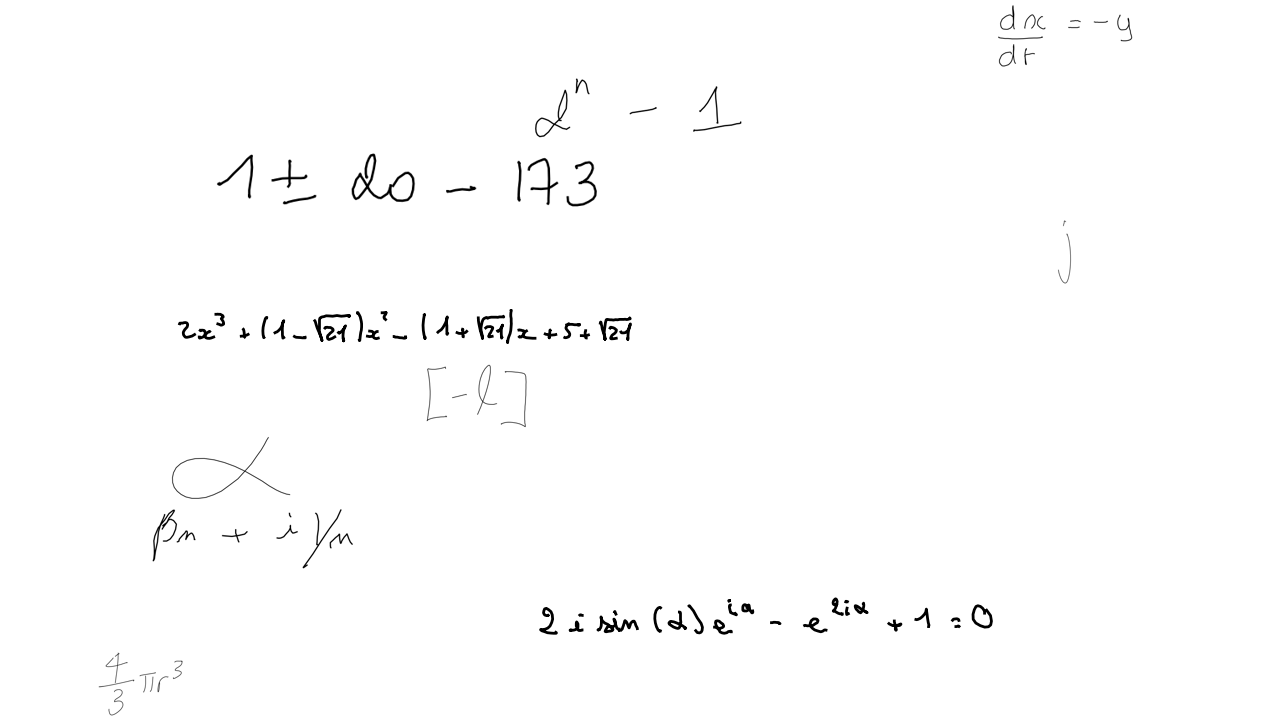 dx/dt = -y
2ⁿ - 1
1 ± 20 - 173
j
2x³ + (1 - √21)x² - (1 + √21)x + 5 + √21
[-l]
α
βn + iγn
2 i sin(α)e^{iα} - e^{2iα} + 1 = 0
4/3 πr³